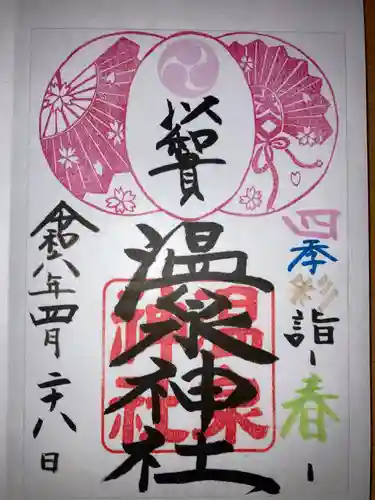 四季彩詣
-春-
以和貴
温泉神社
温泉
神社
令和六年四月二十八日